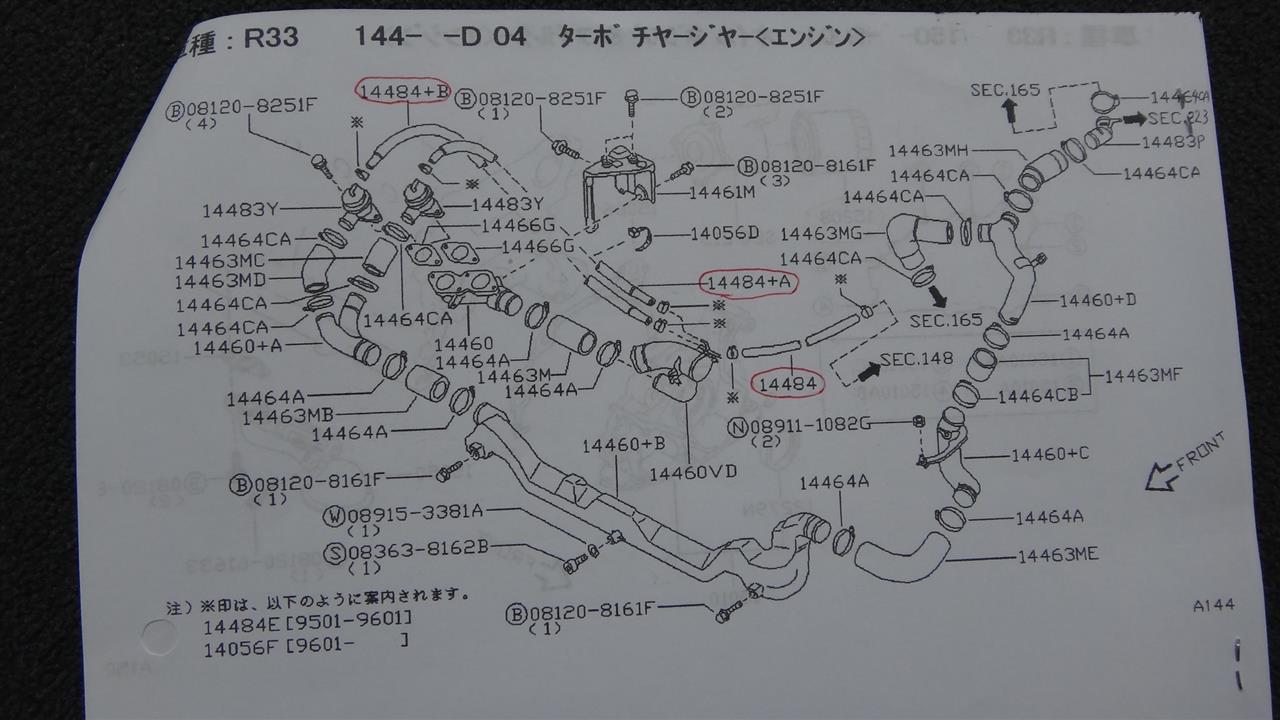 車種 : R33 144- -D 04 ターボ チャージャー<エンジン>
14484+B
Ⓑ08120-8251F
(4)
※
Ⓑ08120-8251F
(1)
Ⓑ08120-8251F
(2)
SEC.165
SEC.
14483P
14463MH
14464CA
14464CA
Ⓑ08120-8161F
(3)
14461M
※
14483Y
14483Y
14464CA
14466G
14466G
14056D
14463MG
14464CA
14464CA
14463MC
14463MD
14464CA
14464CA
14460+A
14464CA
14460
14464A
14463M
14464A
14484+A
※
※
※
SEC.165
14460+D
14464A
SEC.148
14463MF
14464CB
14484
※
14464A
14463MB
14464A
Ⓝ08911-1082G
(2)
14460+B
14460VD
14460+C
FRONT
Ⓑ08120-8161F
(1)
14464A
14464A
Ⓦ08915-3381A
(1)
Ⓢ08363-8162B
(1)
14463ME
注) ※印は、以下のように案内されます。
14484E[9501-9601]
14056F[9601- ]
Ⓑ08120-8161F
(1)
A144